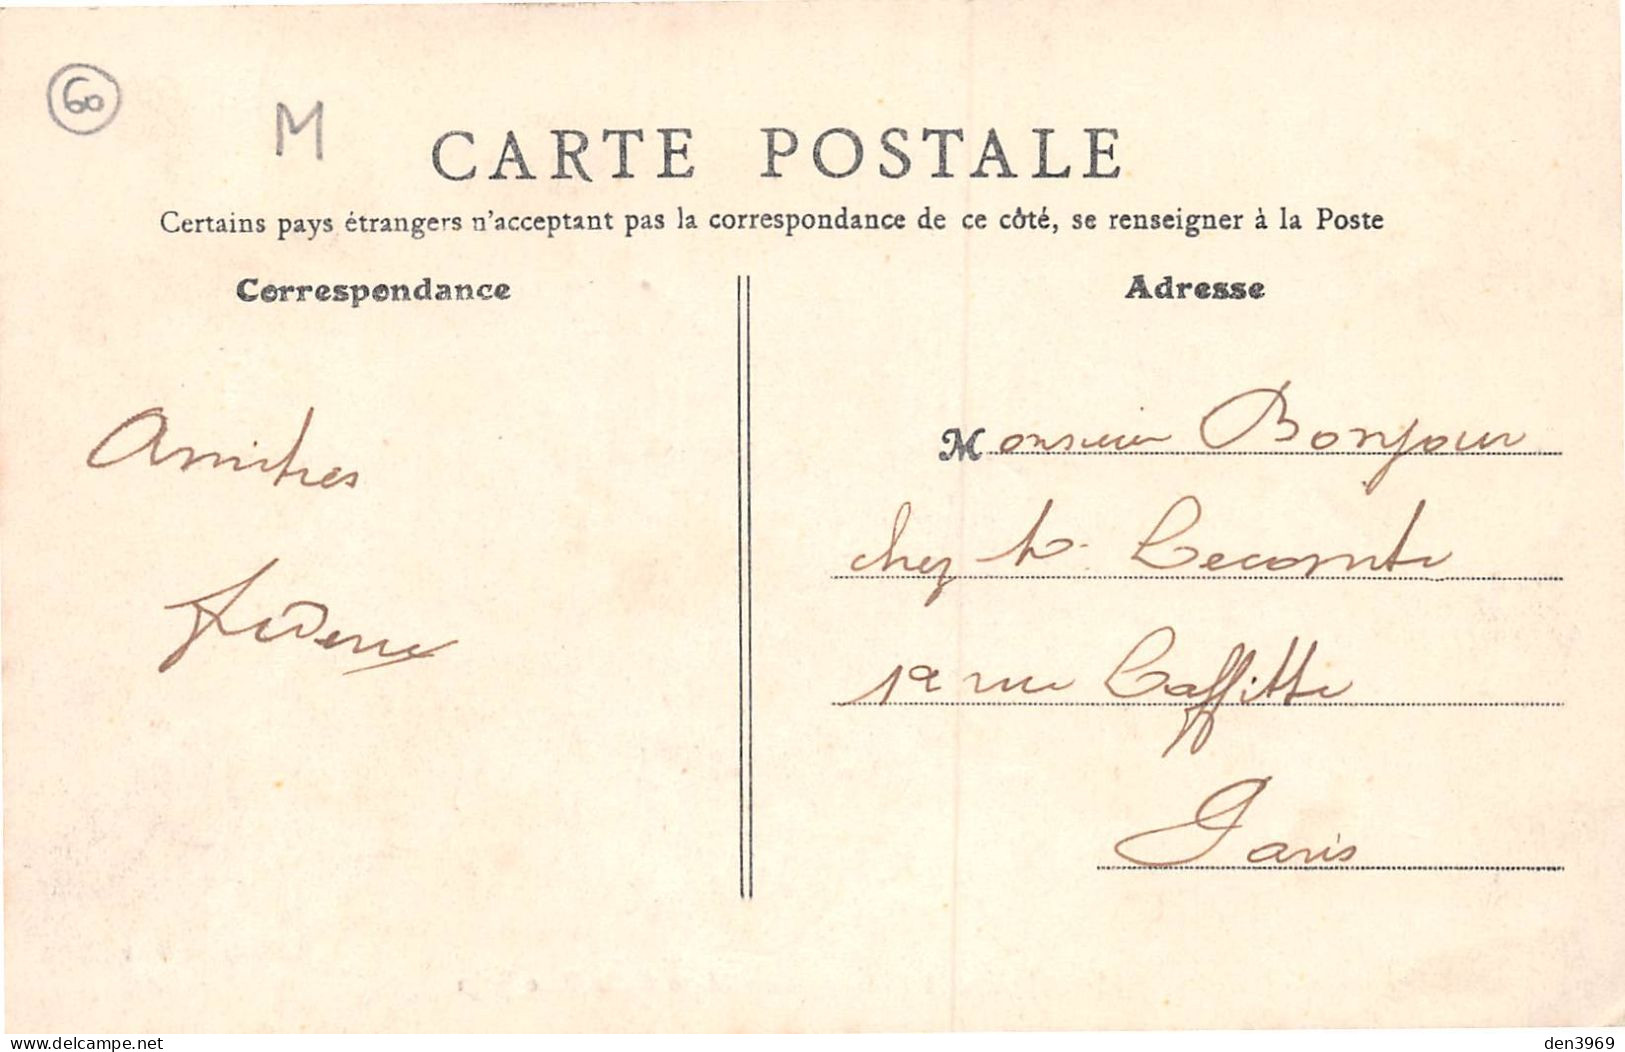 60
M
CARTE POSTALE
Certains pays étrangers n'acceptant pas la correspondance de ce côté, se renseigner à la Poste
Correspondance
Adresse
Amitiés
Monsieur Bonjour
chez Lecomte
rue Laffitte
Paris
den3969